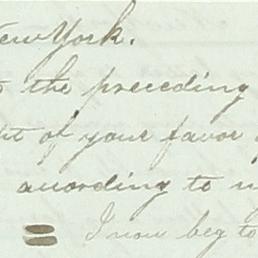 New York.
the preceding
of your favor
according to
I now beg to